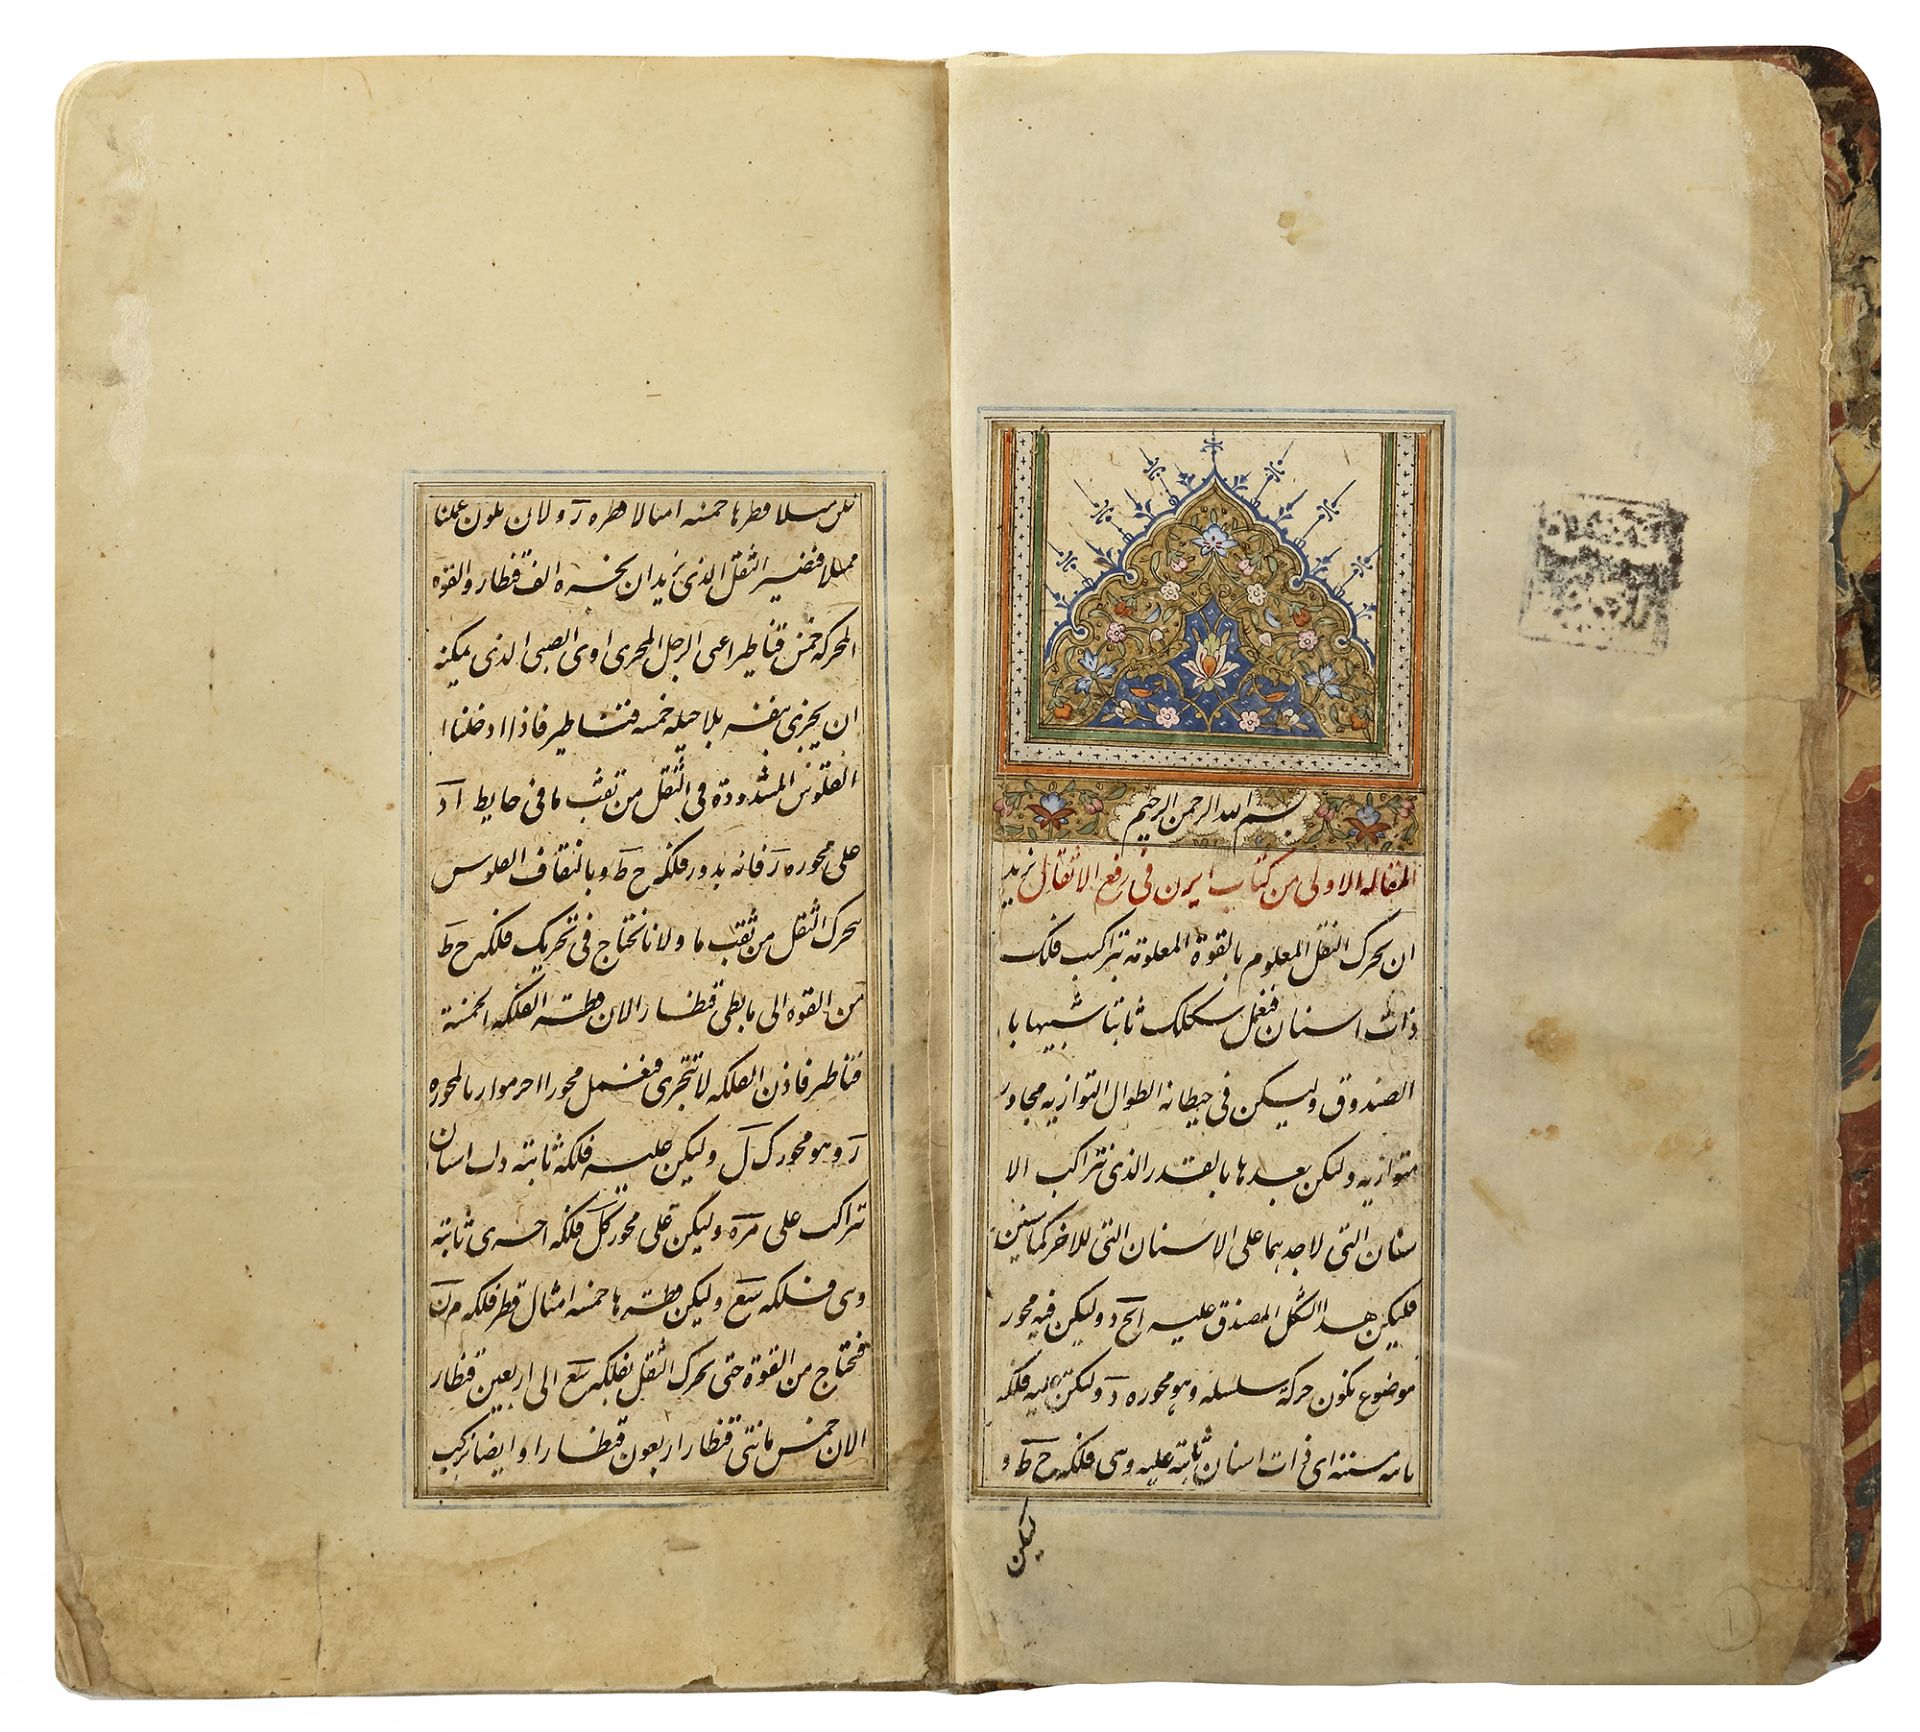 بسم الله الرحمن الرحيم
المقاله الاولى من كتاب ايرن فى رفع الاثقال نريد
ان نحرك الثقل المعلوم بالقوة المعلومة بتراكب فلك
ذات اسنان فنعمل شكلا ثابتا شبيها با
الصندوق وليكن فى حيطانه الطوال المتوازيه محاور
متوازيه وليكن بعدها بالقدر الذى تتراكب الا
سنان التى لاحدهما على الاسنان التى للاخر كما سنبين
فليكن هذا الشكل المصندق عليه ابجد وليكن فيه محور
موضوع تكون حركة سلسله وهو محور ه د وليكن عليه فلكه
مسننه اى ذات اسنان ثابته عليه وهى فلكه ح ط و
ليكن
قطرها خمسه امثالا قطره ر و لان يكون عملنا
ممثلا فنصير الثقل الذى نريد ان نجره الف قنطار والقوه
المحركه خمس قناطير اعنى الرجل المحرى اوى الصبى الذى يمكنه
ان يجزى بنفسه بلا حيله خمسه قناطير فاذا ادخلنا ا
القلوس المشدودة فى الثقل من ثقب ما فى حايط ا د
على محور ه ر فانه يدور فلكه ح ط وبالتفاف القلوس
يحرك الثقل من ثقب ما ولانا نحتاج فى تحريك فلكه ح ط
من القوه الى مايطى قنطار الان قطر الفلكه الخمسة
قناطير فاذن الفلكه لا تتجرى فنعمل محورا اخر موازيا لمحور ه
ر وهو محور ك ل وليكن عليه فلكه ثابته ذات اسنان
تتراكب على م ر ه وليكن على محور ك ل فلكه اخرى ثابته
وهى فلكه س ع وليكن قطرها خمسه امثال قطر فلكه م ن
فنحتاج من القوة حتى نحرك الثقل بفلكه س ع الى اربعين قنطار
الان خمس مائتى قنطار اربعون قنطارا وايضا نركب